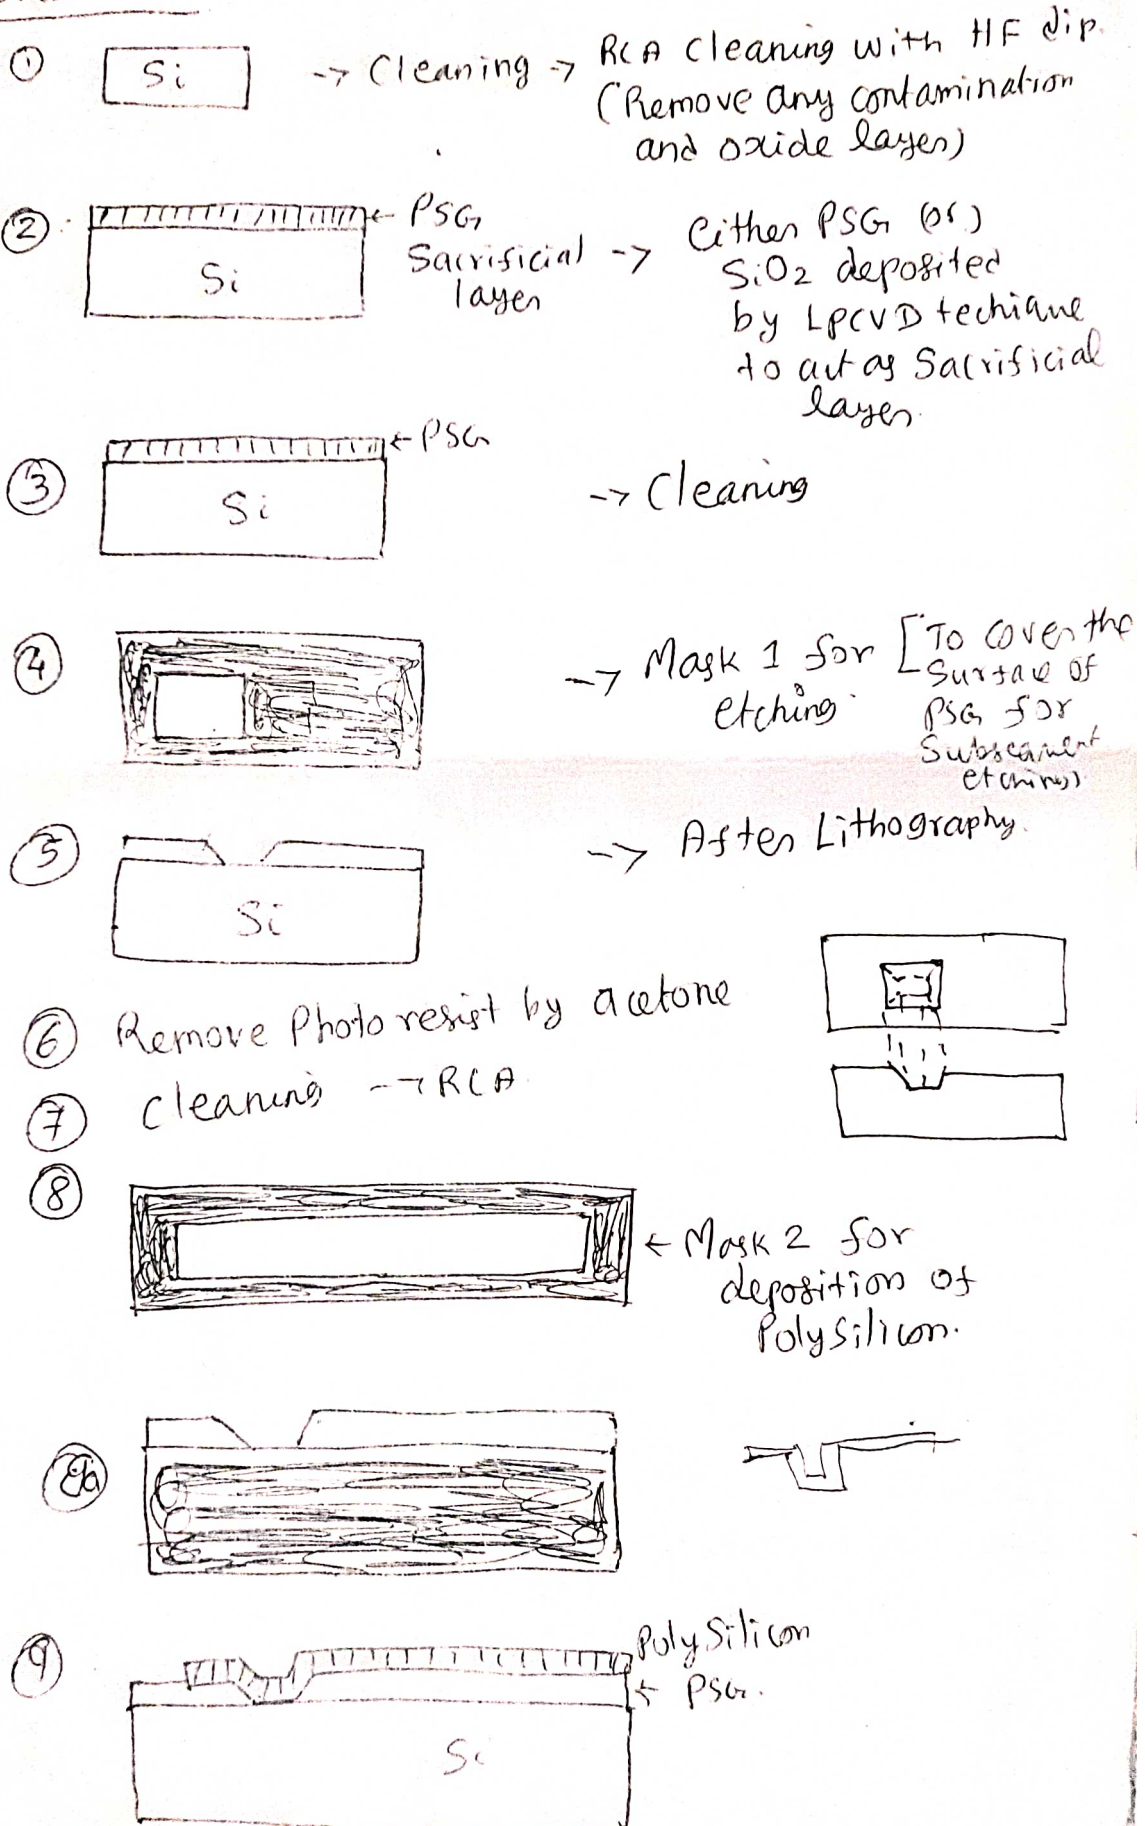 ① Si -> Cleaning -> RCA Cleaning with HF dip.
(Remove any contamination
and oxide layer)
② PSG
Sacrificial
layer
Si
-> Either PSG (or)
SiO2 deposited
by LPCVD techique
to act as Sacrificial
layer.
③ PSG
Si
-> Cleaning
④ -> Mask 1 for
etching.
[To cover the
Surface of
PSG for
Subsequent
etching)
⑤ -> After Lithography.
Si
⑥ Remove Photoresist by acetone
⑦ Cleaning -> RCA
⑧ ← Mask 2 for
deposition of
Polysilicon.
⑨ Polysilicon
← PSG.
Si